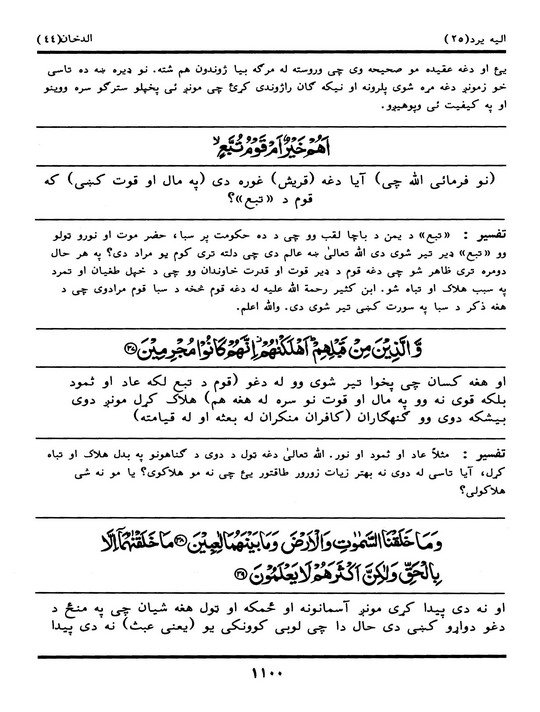 الیه یرد(۲۵)
الدخان(٤٤)
یئ او دغه عقیده مو صحیحه وی چی وروسته له مرگه بیا ژوندون هم شته. نو ډیره ښه ده تاسی
خو زمونږ دغه مړه شوی پلرونه او نیکه گان راژوندی کړئ چی مونږ ئی پخپلو سترگو سره ووینو
او په کیفیت ئی وپوهیږو.
اَهُمْ خَيْرٌ اَمْ قَوْمُ تُبَّعٍ ۙ
(نو فرمائی الله چی) آیا دغه (قریش) غوره دی (په مال او قوت کښی) که
قوم د «تبع»؟
تفسیر : «تبع» د یمن د باچا لقب وو چی د ده حکومت پر سبا، حضر موت او نورو ټولو
وو «تبع» ډیر تیر شوی دی الله تعالیٰ ښه عالم دی چی دلته تری کوم یو مراد دی؟ په هر حال
دومره تری ظاهر شو چی دغه قوم د ډیر قوت او قدرت خاوندان وو چی د خپل طغیان او تمرد
په سبب هلاک او تباه شو. ابن کثیر رحمة الله علیه له دغه قوم څخه د سبا قوم مرادوی چی د
هغه ذکر د سبا په سورت کښی تیر شوی دی. والله اعلم.
وَّالَّذِيْنَ مِنْ قَبْلِهِمْ ۚ اَهْلَكْنٰهُمْ ۫ اِنَّهُمْ كَانُوْا مُجْرِمِيْنَ ۳۷
او هغه کسان چی پخوا تیر شوی وو له دغو (قوم د تبع لکه عاد او ثمود
بلکه قوی نه وو په مال او قوت نو سره له هغه هم) هلاک کړل مونږ دوی
بیشکه دوی وو گنهگاران (کافران منکران له بعثه او له قیامته)
تفسیر : مثلاً عاد او ثمود او نور. الله تعالیٰ دغه ټول د دوی د گناهونو په بدل هلاک او تباه
کړل، آیا تاسی له دوی نه بهتر زیات زورور طاقتور یئ چی نه مو هلاکوی؟ یا مو نه شی
هلاکولی؟
وَمَا خَلَقْنَا السَّمٰوٰتِ وَالْاَرْضَ وَمَا بَيْنَهُمَا لٰعِبِيْنَ ۳۸ مَا خَلَقْنٰهُمَآ اِلَّا
بِالْحَقِّ وَلٰكِنَّ اَكْثَرَهُمْ لَا يَعْلَمُوْنَ ۳۹
او نه دی پیدا کړی مونږ آسمانونه او ځمکه او ټول هغه شیان چی په منځ د
دغو دواړو کښی دی حال دا چی لوبی کوونکی یو (یعنی عبث) نه دی پیدا
۱۱۰۰